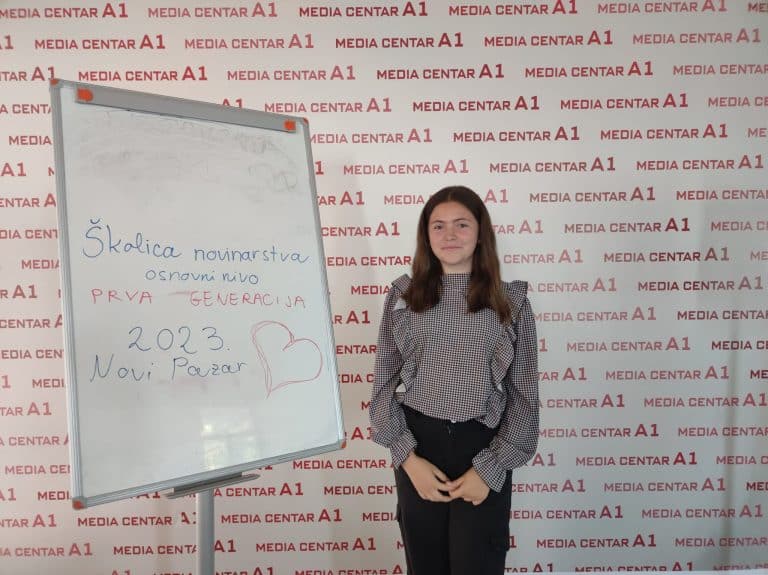 MEDIA CENTAR A1
Školica novinarstva
osnovni nivo
PRVA GENERACIJA
2023.
Novi Pazar